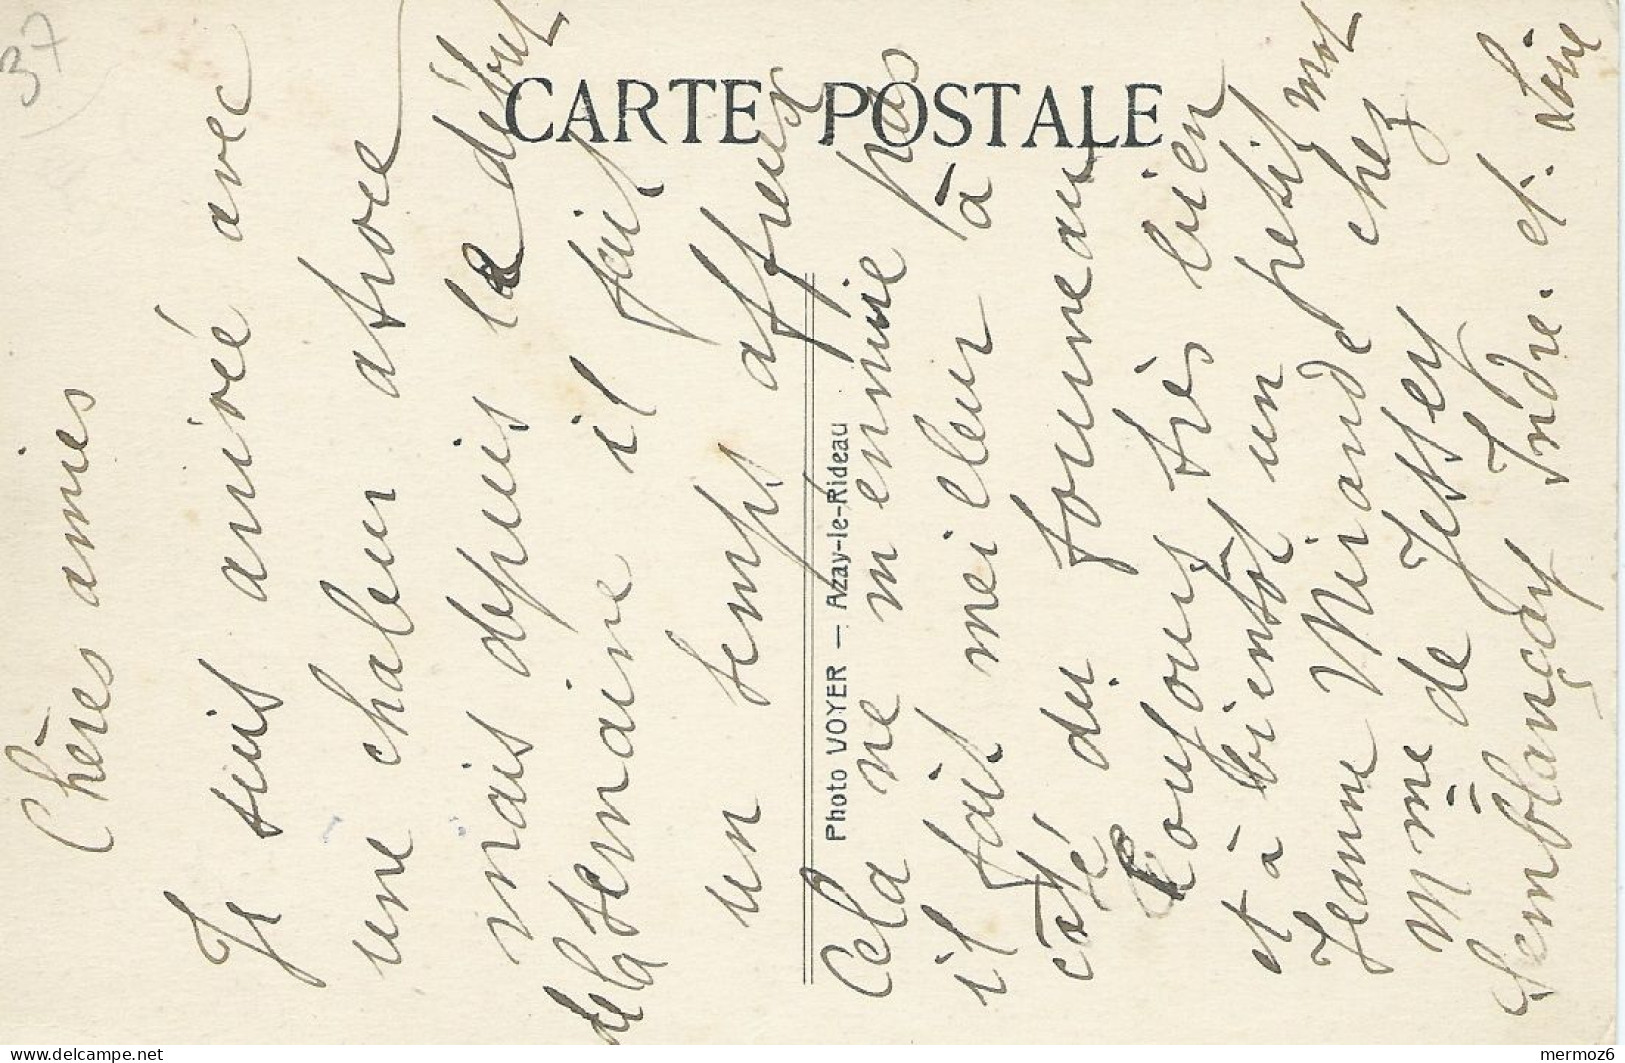 37
CARTE POSTALE
Photo VOYER — Azay-le-Rideau
Chères amies
Je suis arrivée avec
une chaleur atroce
mais depuis le début
de la semaine il fait
un temps affreux
Cela ne m'ennuie pas
il fait meilleur à
côté du fourneau
Toujours très bien
et à bientôt un petit mot
Jeanne Mirande chez
Mme de Jessey
Semblançay Indre. et. Loire
mermoz6